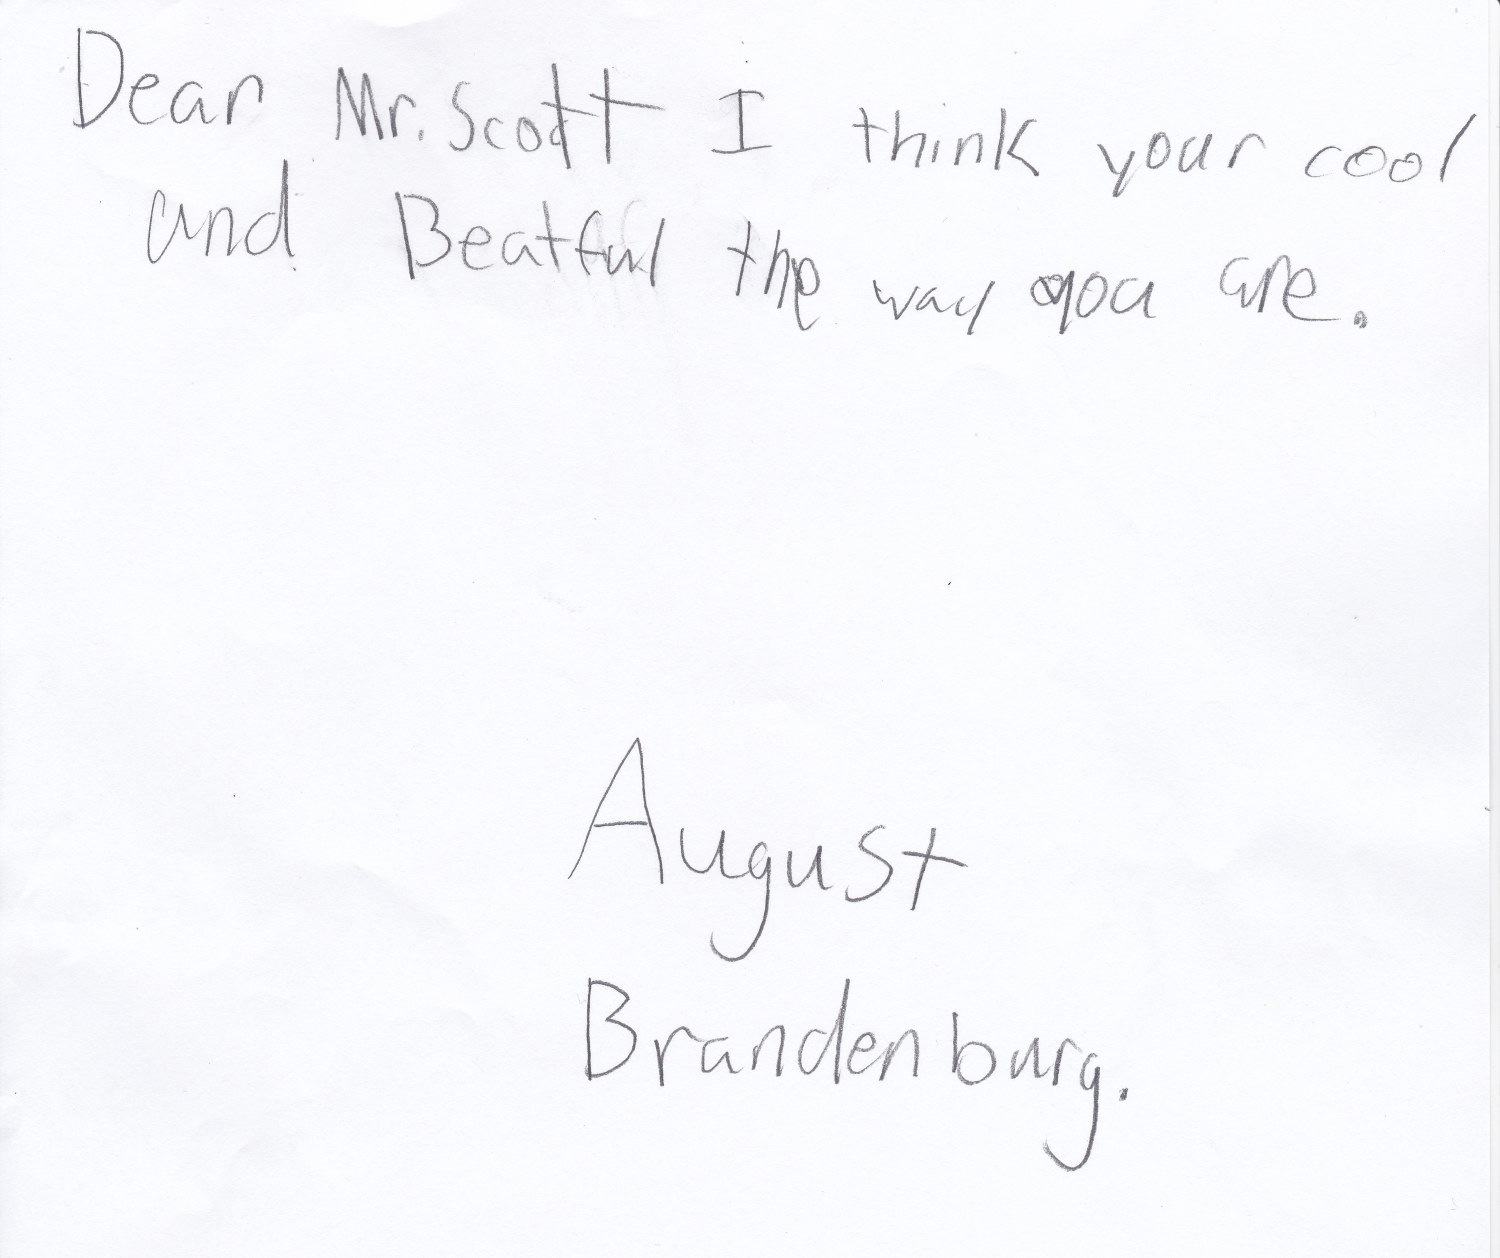 Dear Mr. Scott I think your cool
and Beatful the way you are.
August
Brandenburg.